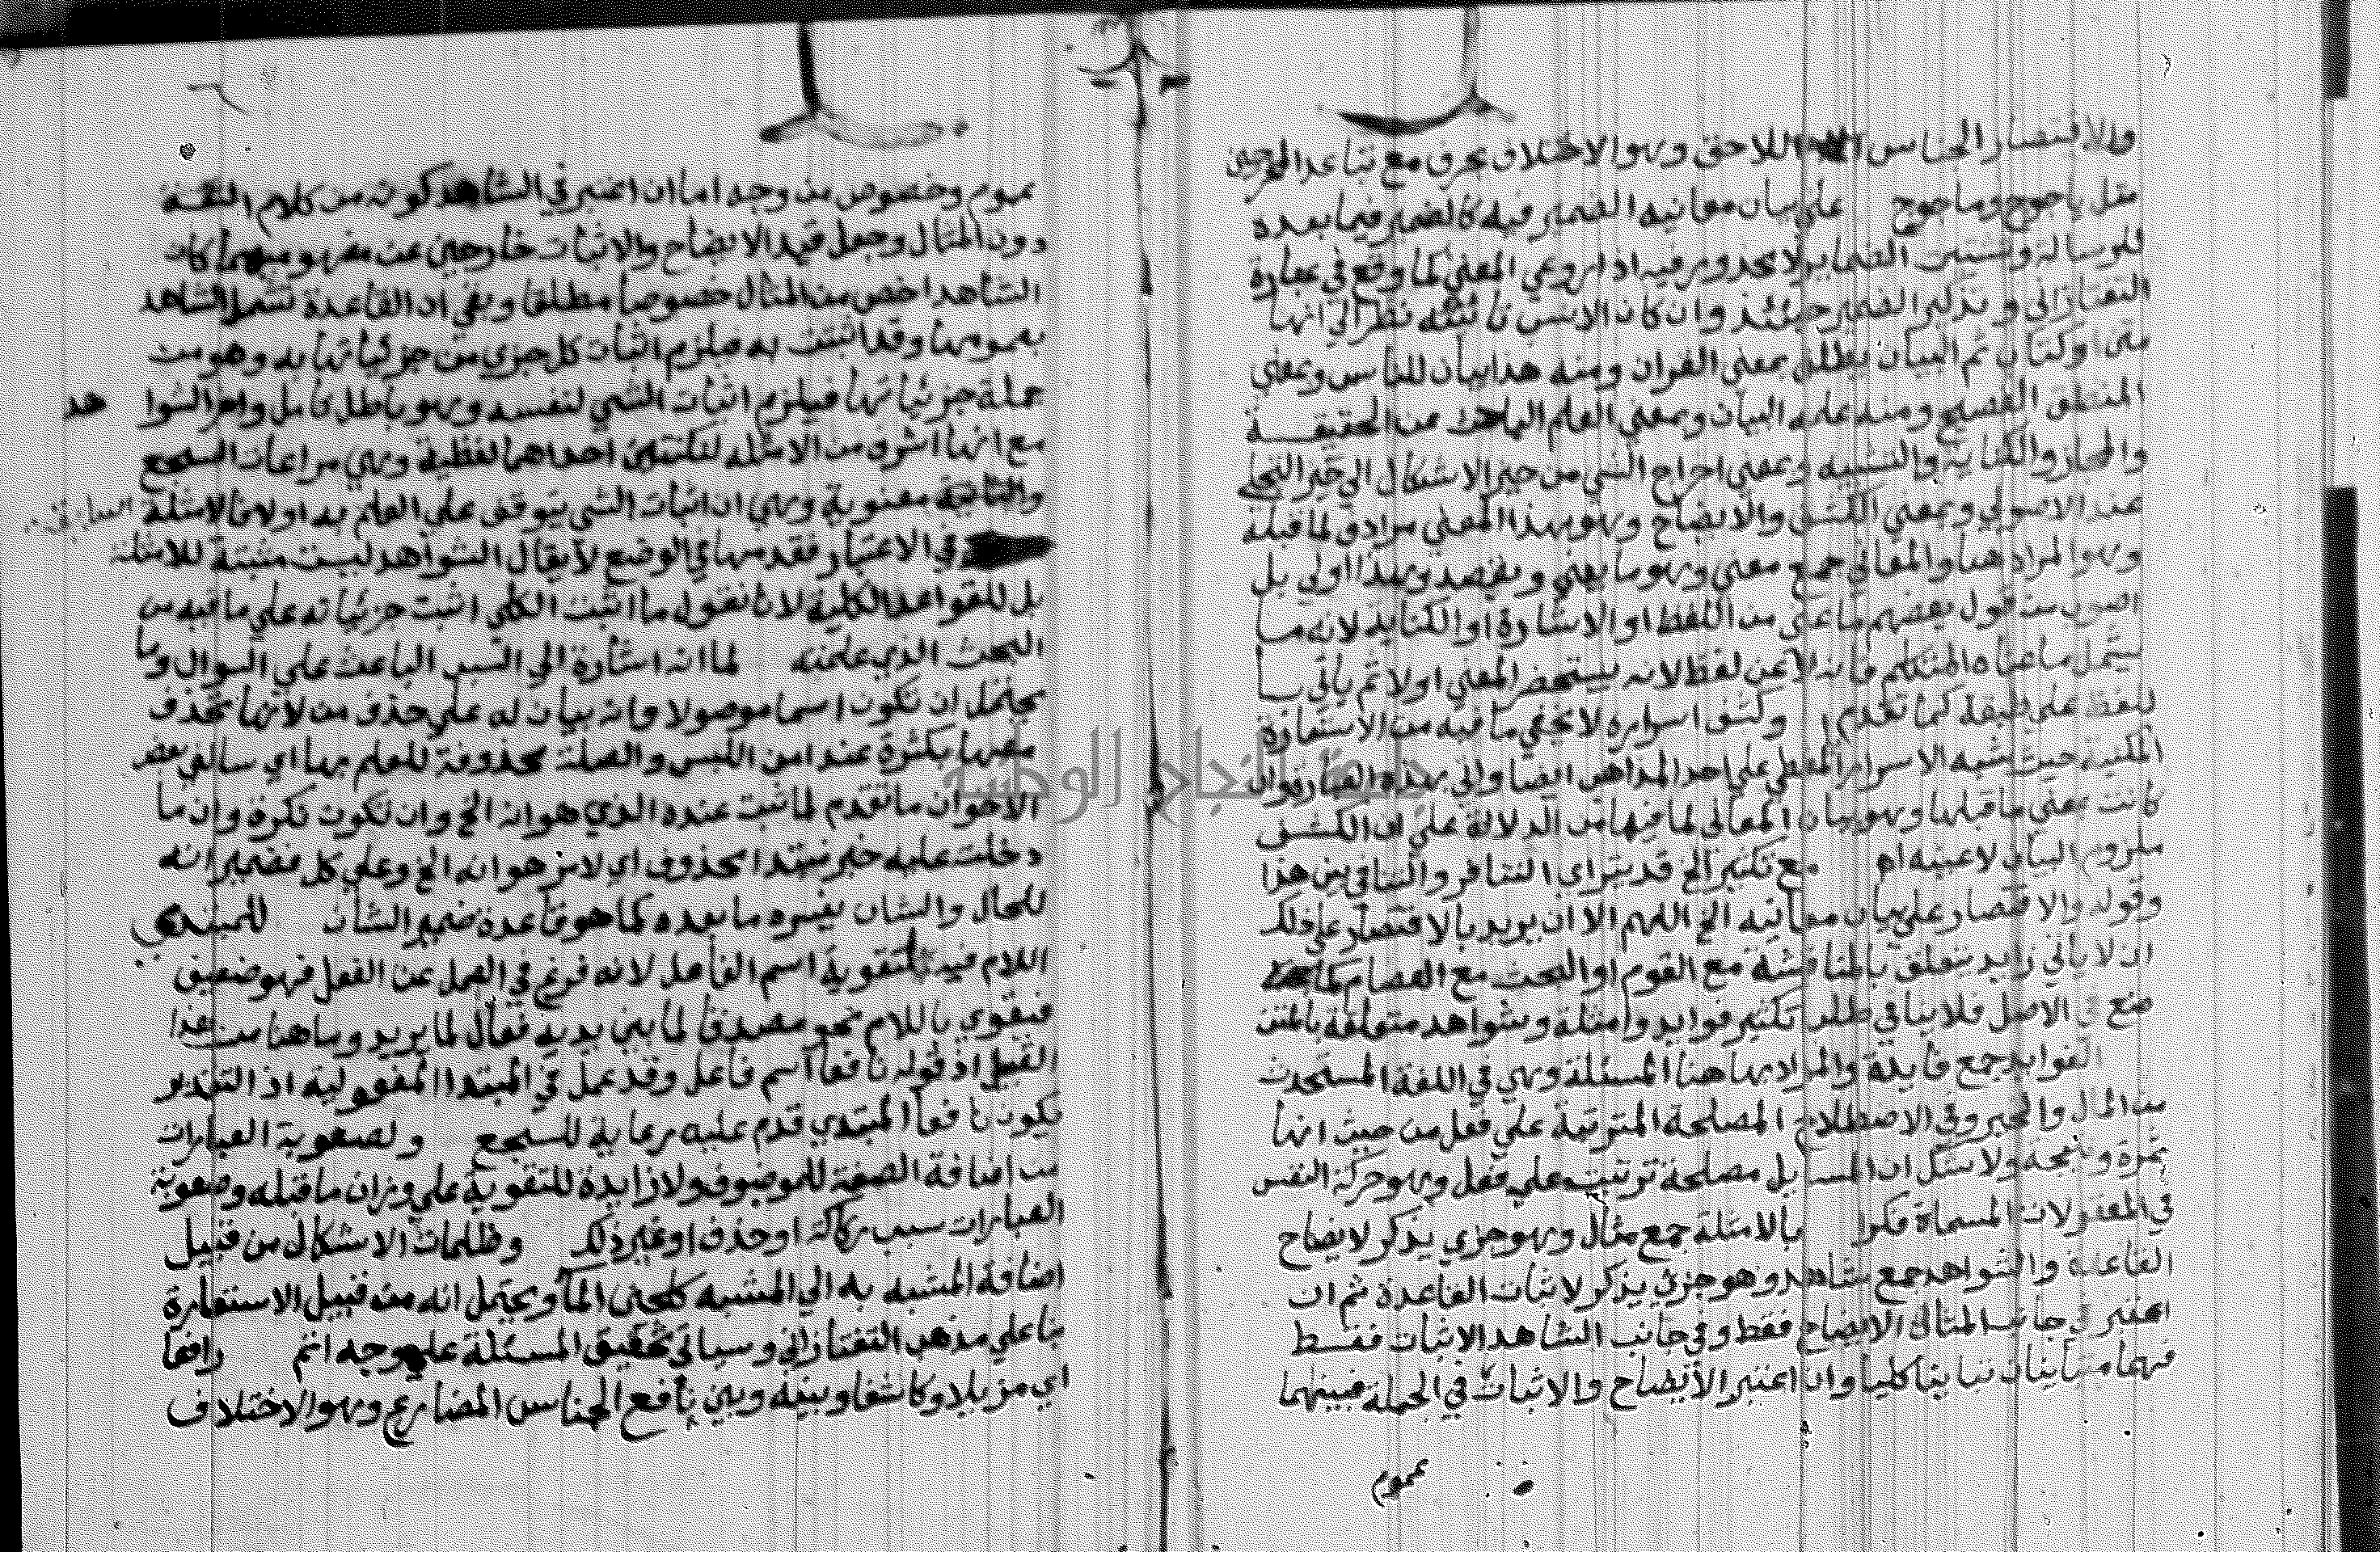 والاقتصار الجناس اللاحق وهو الاختلاف بحرف مع تباعد المخرجين
مثل ياجوج وماجوج على بيان معانيه الضمير فيه كالضمير فيما بعده
للرسالة وتشتيت الضماير لا محذور فيه اذا روعي المعني كما وقع في عبارة
التفتازاني وتذكير الضمير حينئذ وان كان الانسب تانيثه نظرا الي انها
متن او كتاب ثم البيان يطلق بمعني القران ومنه هذا بيان للناس وبمعني
المنطق الفصيح ومنه علمه البيان وبمعني العلم الباحث عن الحقيقة
والمجاز والكناية والتشبيه وبمعني اخراج الشي من حيز الاشكال الي حيز التجلي
عند الاصولي وبمعني الكشف والايضاح وهو بهذا المعني مرادف لما قبله
وهو المراد هنا والمعاني جمع معني وهو ما يعني ويقصد وهذا اولي بل
اصوب من قول بعضهم ما عني من اللفظ او الاشارة او الكناية لانه ما
يشمل ما عناه المتكلم فانه لا عن لفظ لانه يستحضر المعني اولا ثم ياتي ب
للفظ على طبقه كما تقدم وكشف اسراره لا يخفي ما فيه من الاستعارة
المكنية حيث شبه الاسرار المغطي على احد المذاهب ايضا واتي بهذه العبارة وان
كانت بمعني ما قبلها وهو بيان المعاني لما فيها من الدلالة على ان الكشف
ملزوم البيان لا عينه اه مع تكثير الخ قد يتراي التنافر والتنافي بين هذا
وقوله والاقتصار على بيان معانيه الخ اللهم الا ان يريد بالاقتصار على ذلك
ان لا ياتي زايد يتعلق بالمناقشة مع القوم او البحث مع العصام كما
صنع في الاصل فلا ينافي طلب تكثير فوايد وامثلة وشواهد متعلقة بالمتن
الفوايد جمع فايدة والمراد بها هنا المسئلة وهي في اللغة المستحدث
من المال والخير وفي الاصطلاح المصلحة المترتبة على فعل من حيث انها
ثمرة ونتيجة ولا شك ان المسايل مصلحة ترتبت على فعل وهو حركة النفس
في المعقولات المسماة فكرا بالامثلة جمع مثال وهو جزي يذكر لايضاح
القاعدة والشواهد جمع شاهد وهو جزئ يذكر لاثبات القاعدة ثم ان
اعتبر في جانب المثال الايضاح فقط وفي جانب الشاهد الاثبات فقط
فهما متباينان تباينا كليا وان اعتبر الايضاح والاثبات في الجملة فبينهما
عموم
عموم وخصوص من وجه اما ان اعتبر في الشاهد كونه من كلام الثقة
دون المثال وجعل قيد الايضاح والاثبات خارجين عن مفهوميهما كان
الشاهد اخص من المثال خصوصا مطلقا وبقي ان القاعدة تشمل الشاهد
بعمومها وقد اثبتت به فيلزم اثبات كل جزي من جزئياتها به وهو من
جملة جزئياتها فيلزم اثبات الشي لنفسه وهو باطل تامل واخر الشوا هد
مع انها اشرف من الامثله لنكتتين احداهما لفظية وهي مراعات السجع
والثانية معنوية وهي ان اثبات الشي يتوقف على العلم به اولا فالامثلة السابق
في الاعتبار فقدمها في الوضع لا يقال الشواهد ليست مثبتة للامثلة
بل للقواعد الكلية لانا نقول ما اثبت الكلي اثبت جزئياته على ما فيه من
البحث الذي علمته لما انه اشارة الي السبب الباعث على السوال وما
يحتمل ان تكون اسما موصولا وانه بيان له على حذف من لانها تحذف
معها بكثرة عند امن اللبس والصلة محذوفة للعلم بها اي سالني بعض
الاخوان ما تقدم لما ثبت عنده الذي هو انه الخ وان تكون نكرة وان ما
دخلت عليه خبر مبتدا محذوف اي لامر هو انه الخ وعلي كل فضمير انه
للحال والشان يفسره ما بعده كما هو قاعدة ضمير الشان للمبتدي
اللام فيه لتقوية اسم الفاعل لانه فرع في العمل عن الفعل فهو ضعيف
فيقوي باللام نحو مصدقا لما بين يديه فعال لما يريد وما هنا من هذا
القبيل اذ قوله نافعا اسم فاعل وقد عمل في المبتدا المفعولية اذ التقدير
يكون نافعا المبتدي قدم عليه رعاية للسجع ولصعوبة العبارات
من اضافة الصفة للموصوف ولا زايدة للتقوية على وزان ما قبله وصعوبة
العبارات سبب ركاكة او حذف او غير ذلك وظلمات الاشكال من قبيل
اضافة المشبه به الي المشبه كلجين الما ويحتمل انه من قبيل الاستعارة
بنا على مذهب التفتازاني وسياتي تحقيق المسئلة على وجه اتم رافعا
اي مزيلا وكاشفا وبينه وبين نافع الجناس المضارع وهو الاختلاف